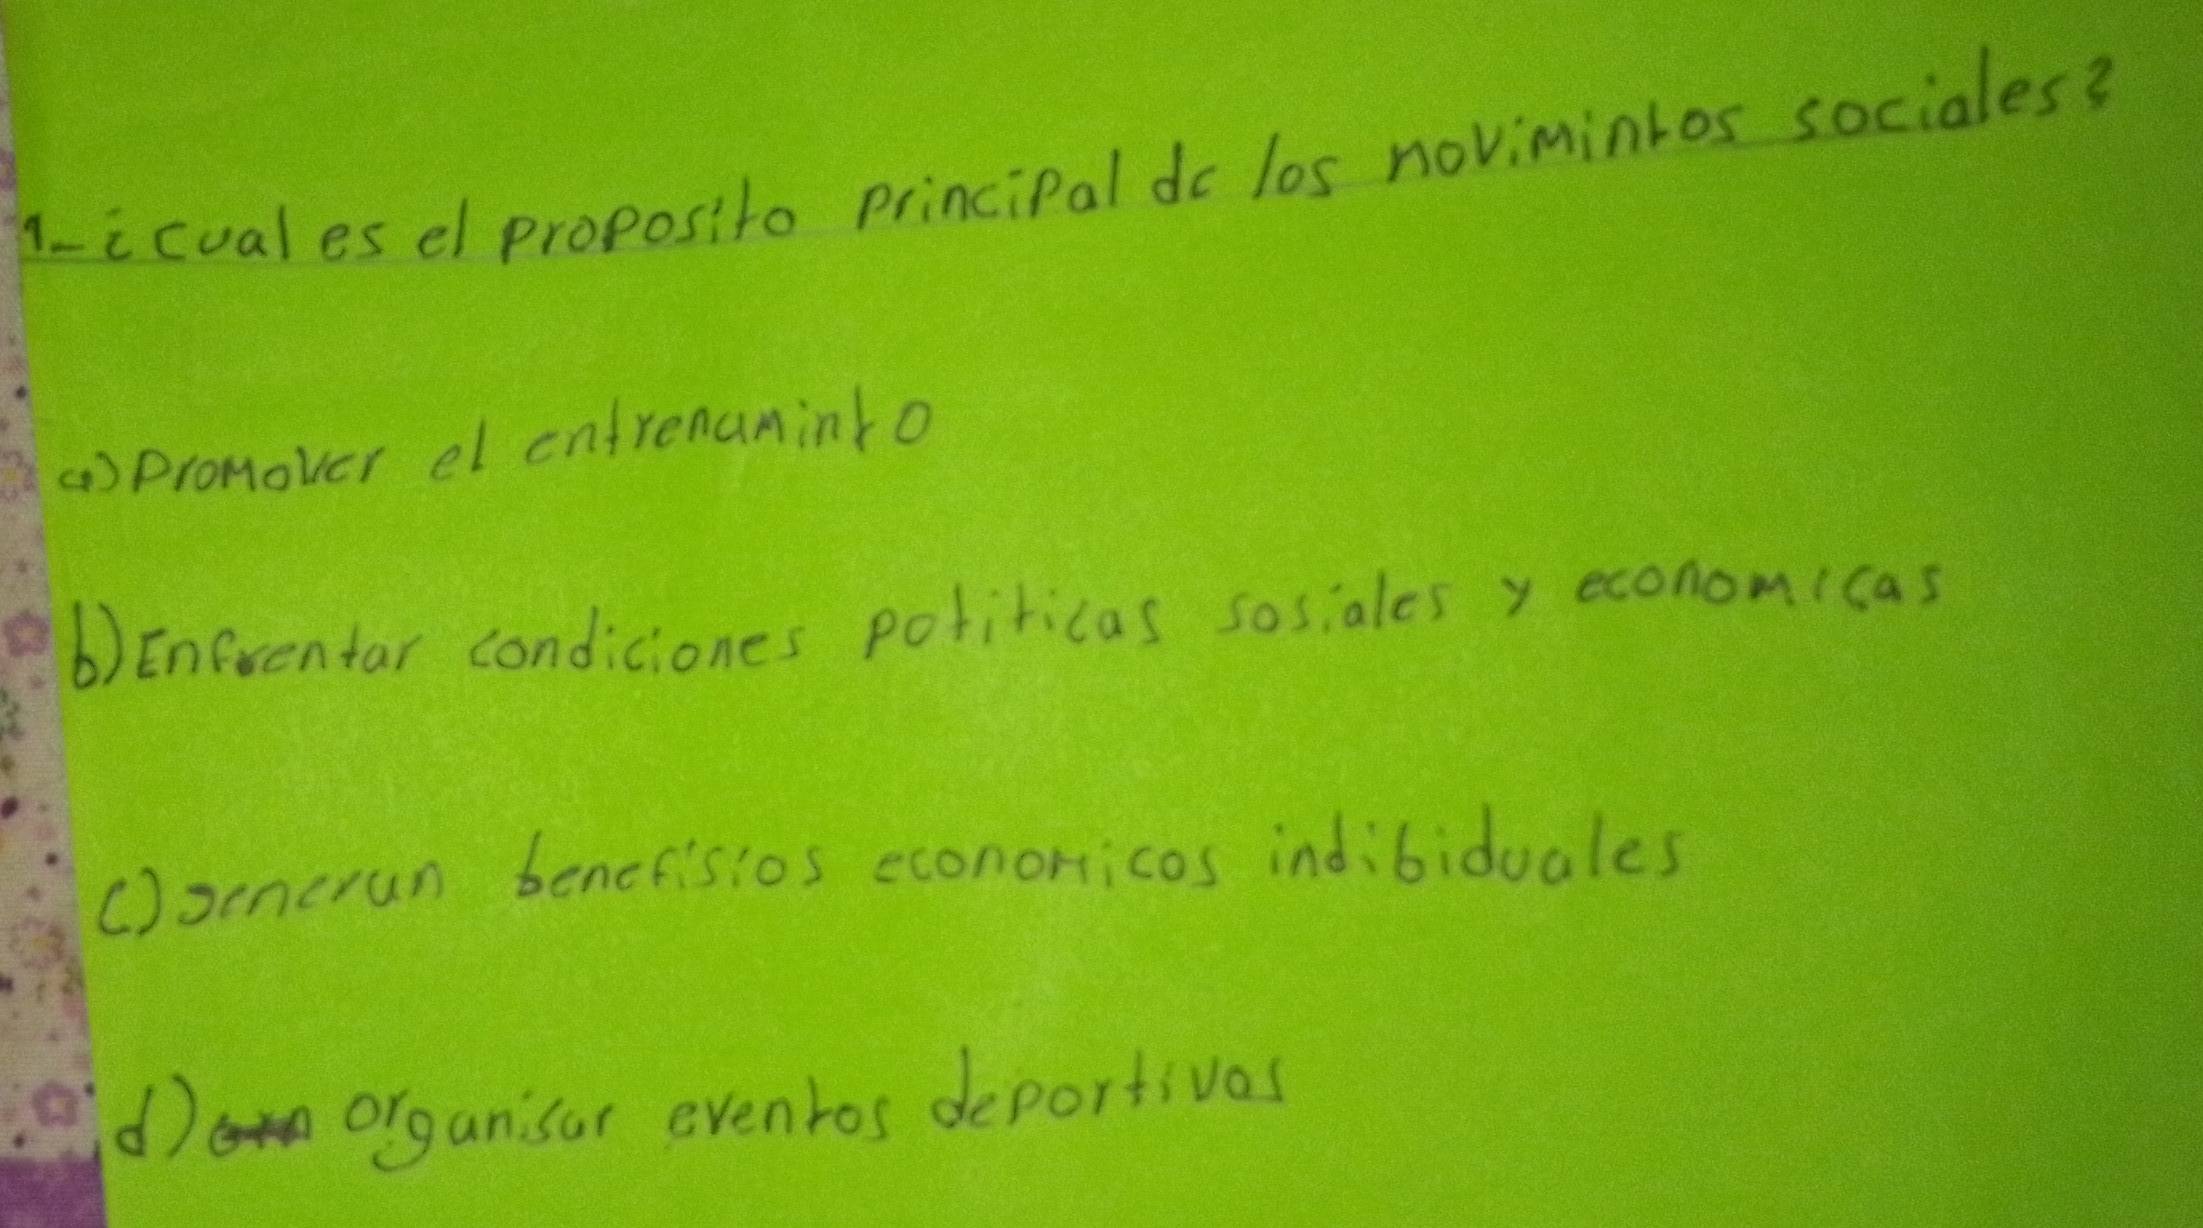 1-¿cual es el proposito principal de los novimintos sociales?
a) Promover el entrenaminto
b) Enfrentar condiciones potiticas sosiales y economicas
c) generan benefisios economicos indibiduales
d) organisar eventos deportivos